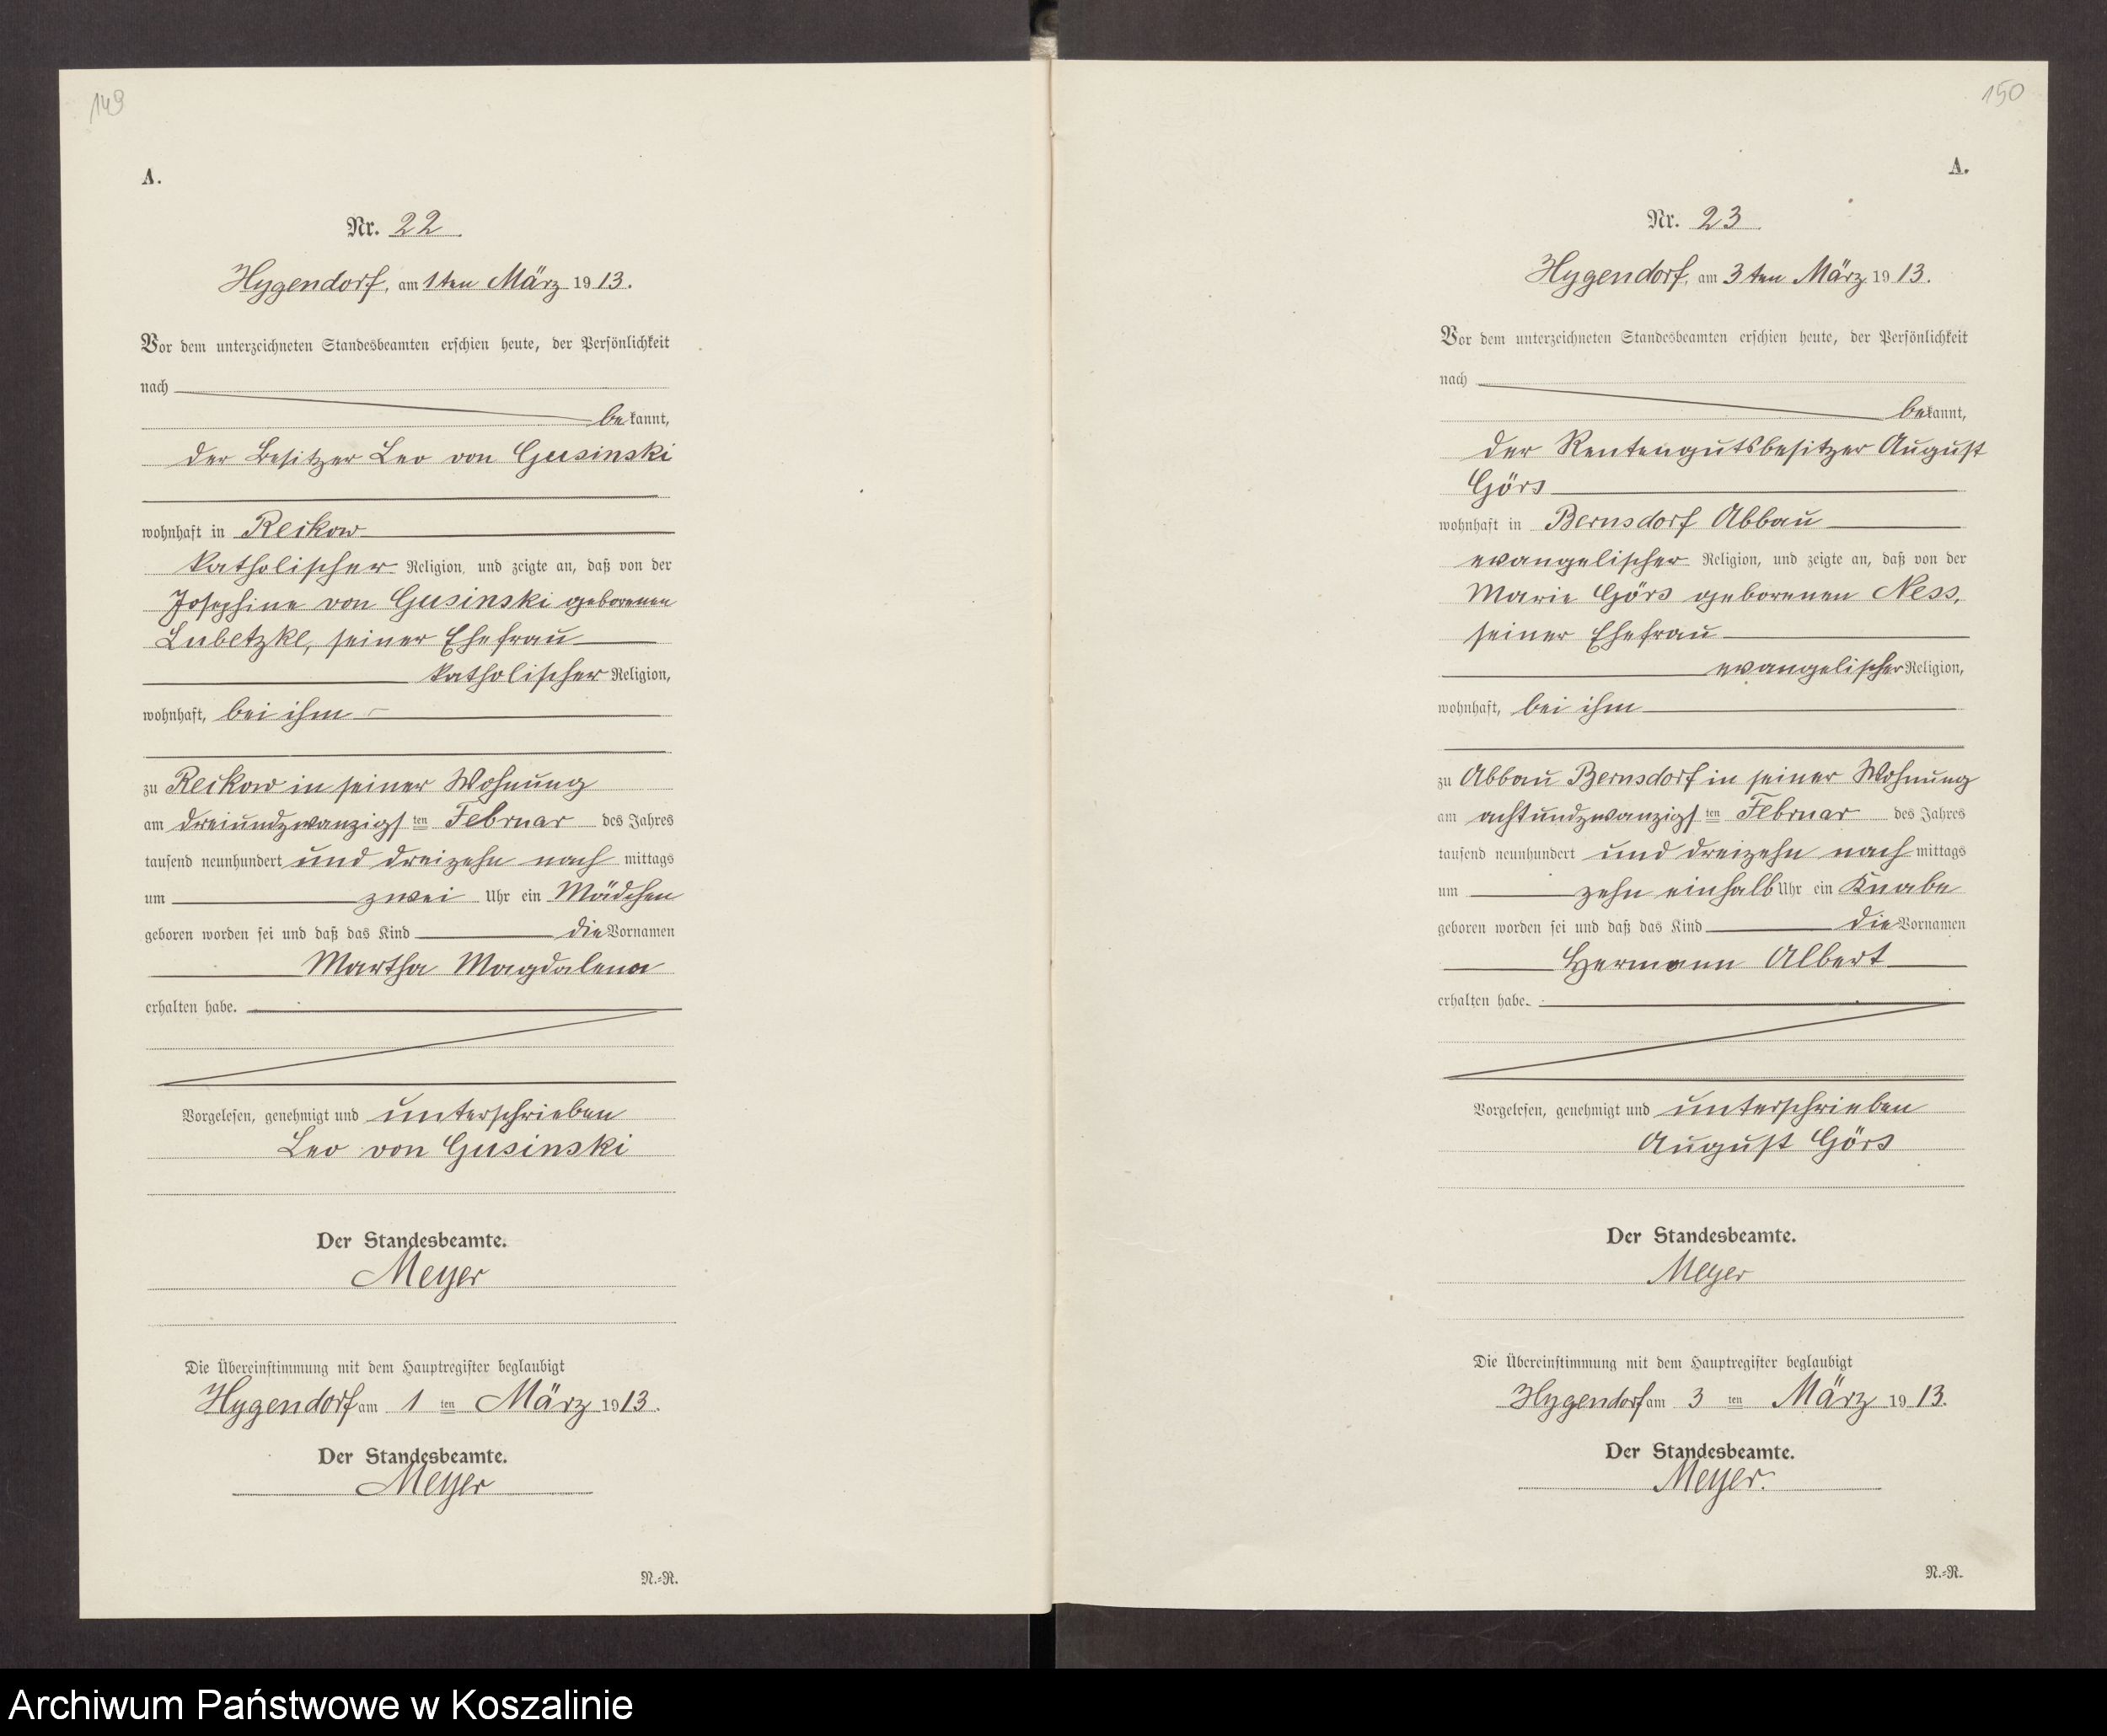 149
A.
Nr. 22.
Hygendorf, am 1ten März 1913.
Vor dem unterzeichneten Standesbeamten erschien heute, der Persönlichkeit
nach
bekannt,
der Besitzer Leo von Gusinski
wohnhaft in Reckow
katholischer Religion, und zeigte an, daß von der
Josephine von Gusinski geborenen
Lubetzke, seiner Ehefrau
katholischer Religion,
wohnhaft, bei ihm
zu Reckow in seiner Wohnung
am dreiundzwanzigsten Februar des Jahres
tausend neunhundert und dreizehn nachmittags
um zwei Uhr ein Mädchen
geboren worden sei und daß das Kind die Vornamen
Martha Magdalena
erhalten habe.
Vorgelesen, genehmigt und unterschrieben
Leo von Gusinski
Der Standesbeamte.
Meyer
Die Übereinstimmung mit dem Hauptregister beglaubigt
Hygendorf am 1ten März 1913.
Der Standesbeamte.
Meyer
N.=R.
150
A.
Nr. 23.
Hygendorf, am 3ten März 1913.
Vor dem unterzeichneten Standesbeamten erschien heute, der Persönlichkeit
nach
bekannt,
der Rentengutsbesitzer August
Görs
wohnhaft in Bernsdorf Abbau
evangelischer Religion, und zeigte an, daß von der
Marie Görs geborenen Ness,
seiner Ehefrau
evangelischer Religion,
wohnhaft, bei ihm
zu Abbau Bernsdorf in seiner Wohnung
am achtundzwanzigsten Februar des Jahres
tausend neunhundert und dreizehn nachmittags
um zehn einhalb Uhr ein Knabe
geboren worden sei und daß das Kind die Vornamen
Hermann Albert
erhalten habe.
Vorgelesen, genehmigt und unterschrieben
August Görs
Der Standesbeamte.
Meyer
Die Übereinstimmung mit dem Hauptregister beglaubigt
Hygendorf am 3ten März 1913.
Der Standesbeamte.
Meyer.
N.=R.
Archiwum Państwowe w Koszalinie